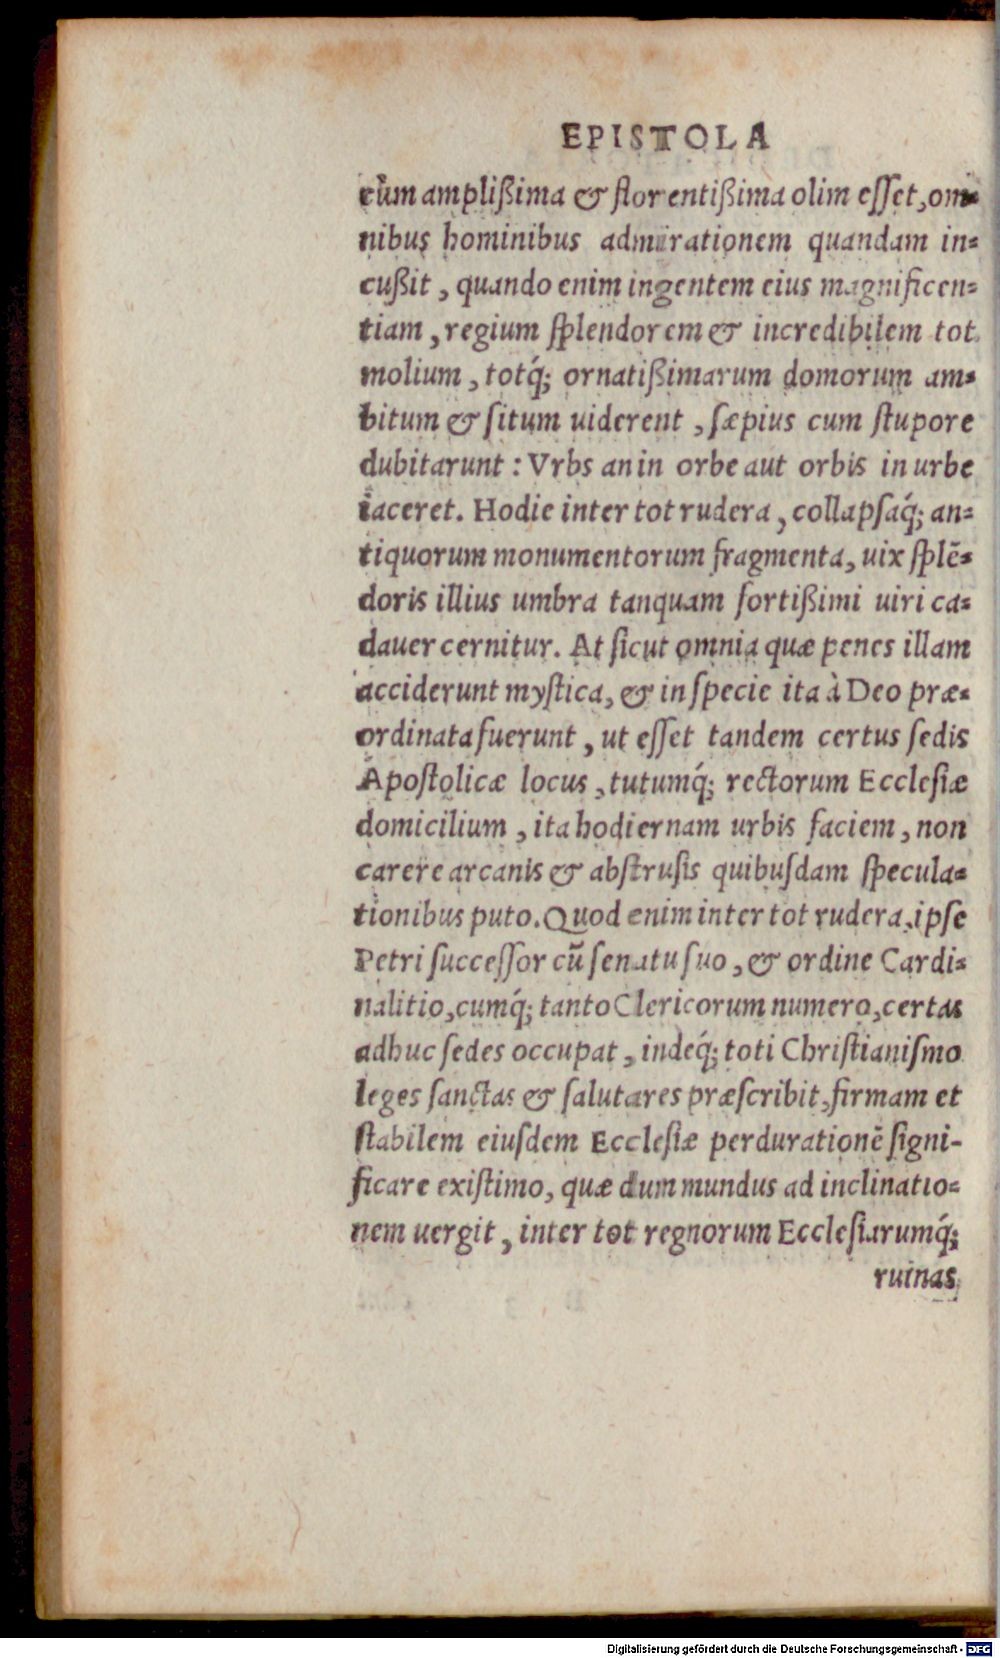 EPISTOLA
cùm amplißima & florentißima olim esset, om-
nibus hominibus admirationem quandam in-
cußit, quando enim ingentem eius magnificen-
tiam, regium splendorem & incredibilem tot
molium, totq́; ornatißimarum domorum am-
bitum & situm uiderent, sæpius cum stupore
dubitarunt: Vrbs an in orbe aut orbis in urbe
iaceret. Hodie inter tot rudera, collapsaq́; an-
tiquorum monumentorum fragmenta, uix splē-
doris illius umbra tanquam fortißimi uiri ca-
dauer cernitur. At sicut omnia quæ penes illam
acciderunt mystica, & in specie ita à Deo præ-
ordinata fuerunt, ut esset tandem certus sedis
Apostolicæ locus, tutumq́; rectorum Ecclesiæ
domicilium, ita hodiernam urbis faciem, non
carere arcanis & abstrusis quibusdam specula-
tionibus puto. Quod enim inter tot rudera, ipse
Petri successor cū senatu suo, & ordine Cardi-
nalitio, cumq́; tanto Clericorum numero, certas
adhuc sedes occupat, indeq́; toti Christianismo
leges sanctas & salutares præscribit, firmam et
stabilem eiusdem Ecclesiæ perdurationē signi-
ficare existimo, quæ dum mundus ad inclinatio-
nem uergit, inter tot regnorum Ecclesiarumq́;
ruinas
Digitalisierung gefördert durch die Deutsche Forschungsgemeinschaft - DFG